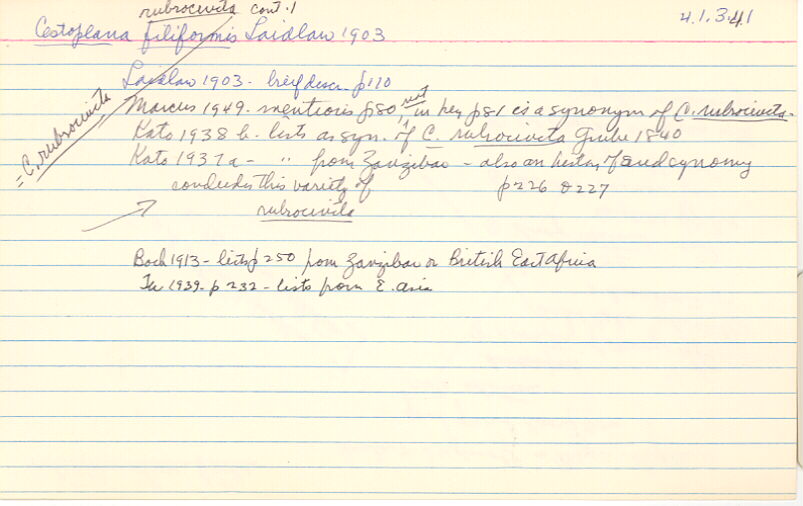 rubrocincta cont. 1
4.1.3.41
Cestoplana filiformis Laidlaw 1903
= C. rubrocincta
Laidlaw 1903 - brief descr. p110
Marcus 1949 - mentions p80, not in key p81 is a synonym of C. rubrocincta.
Kato 1938 b - lists as syn. of C. rubrocincta Grube 1840
Kato 1937a - " from Zanzibar - also an history of
concludes this variety of p226 & 227
rubrocincta
Bock 1913 - lists p250 from Zanzibar or British East Africa
1939 - p 232 - lists from E. asia